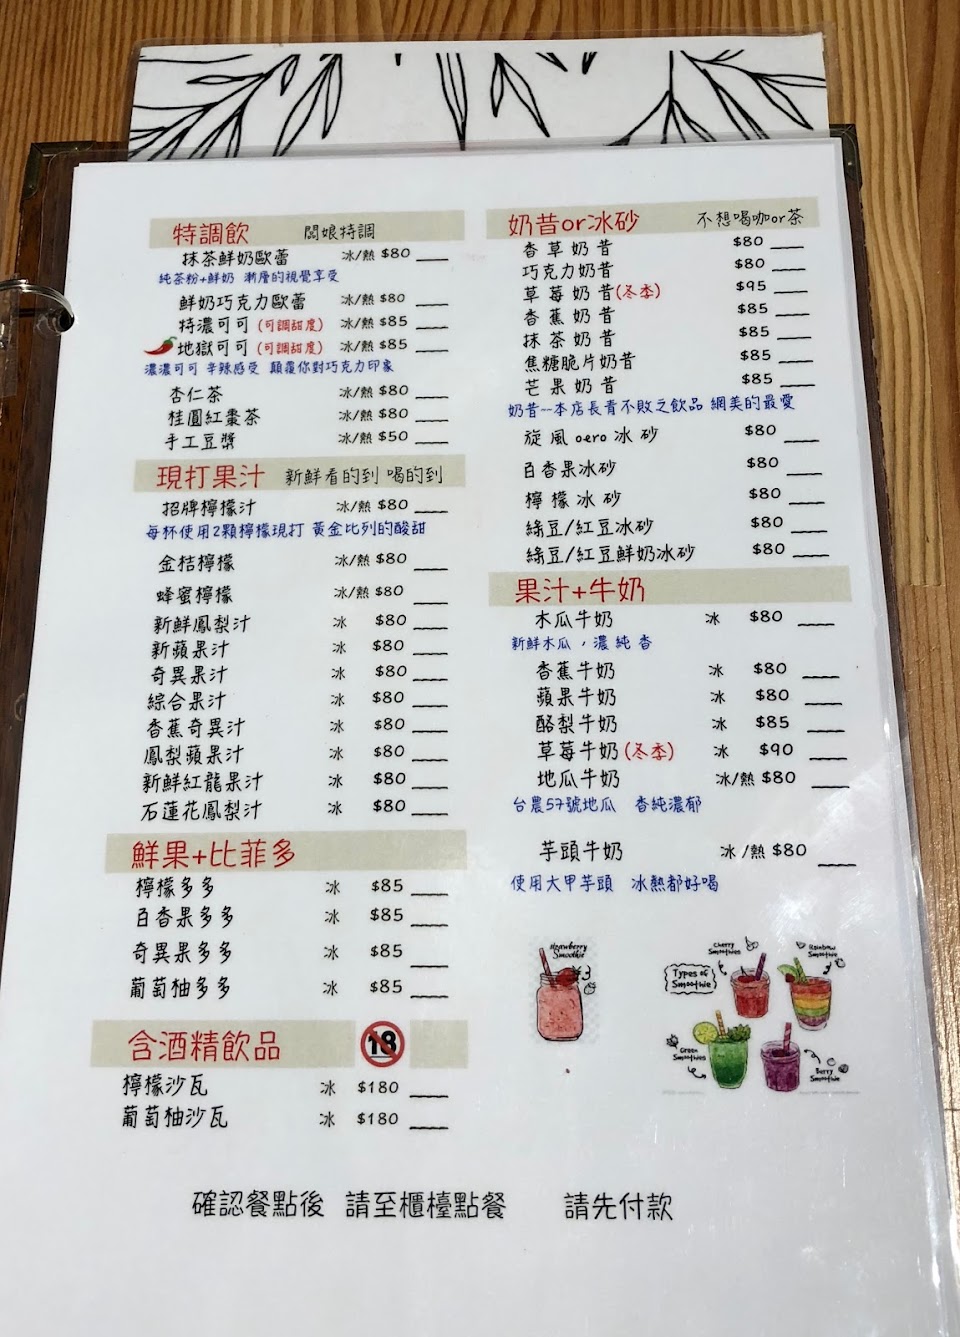 特調飲 闆娘特調
抹茶鮮奶歐蕾 冰/熱 $80
純茶粉+鮮奶 漸層的視覺享受
鮮奶巧克力歐蕾 冰/熱 $80
特濃可可 (可調甜度) 冰/熱 $85
地獄可可 (可調甜度) 冰/熱 $85
濃濃可可 辛辣感受 顛覆你對巧克力印象
杏仁茶 冰/熱 $80
桂圓紅棗茶 冰/熱 $80
手工豆漿 冰/熱 $50
現打果汁 新鮮看的到 喝的到
招牌檸檬汁 冰/熱 $80
每杯使用2顆檸檬現打 黃金比列的酸甜
金桔檸檬 冰/熱 $80
蜂蜜檸檬 冰/熱 $80
新鮮鳳梨汁 冰 $80
新蘋果汁 冰 $80
奇異果汁 冰 $80
綜合果汁 冰 $80
香蕉奇異汁 冰 $80
鳳梨蘋果汁 冰 $80
新鮮紅龍果汁 冰 $80
石蓮花鳳梨汁 冰 $80
鮮果+比菲多
檸檬多多 冰 $85
百香果多多 冰 $85
奇異果多多 冰 $85
葡萄柚多多 冰 $85
含酒精飲品 18
檸檬沙瓦 冰 $180
葡萄柚沙瓦 冰 $180
奶昔or冰砂 不想喝咖or茶
香草奶昔 $80
巧克力奶昔 $80
草莓奶昔(冬季) $95
香蕉奶昔 $85
抹茶奶昔 $85
焦糖脆片奶昔 $85
芒果奶昔 $85
奶昔--本店長青不敗之飲品 網美的最愛
旋風oero冰砂 $80
百香果冰砂 $80
檸檬冰砂 $80
綠豆/紅豆冰砂 $80
綠豆/紅豆鮮奶冰砂 $80
果汁+牛奶
木瓜牛奶 冰 $80
新鮮木瓜，濃純香
香蕉牛奶 冰 $80
蘋果牛奶 冰 $80
酪梨牛奶 冰 $85
草莓牛奶(冬季) 冰 $90
地瓜牛奶 冰/熱 $80
台農57號地瓜 香純濃郁
芋頭牛奶 冰/熱 $80
使用大甲芋頭 冰熱都好喝
Strawberry Smoothie
Types of Smoothie
Cherry Smoothies
Rainbow Smoothie
Green Smoothies
Berry Smoothie
確認餐點後 請至櫃檯點餐 請先付款